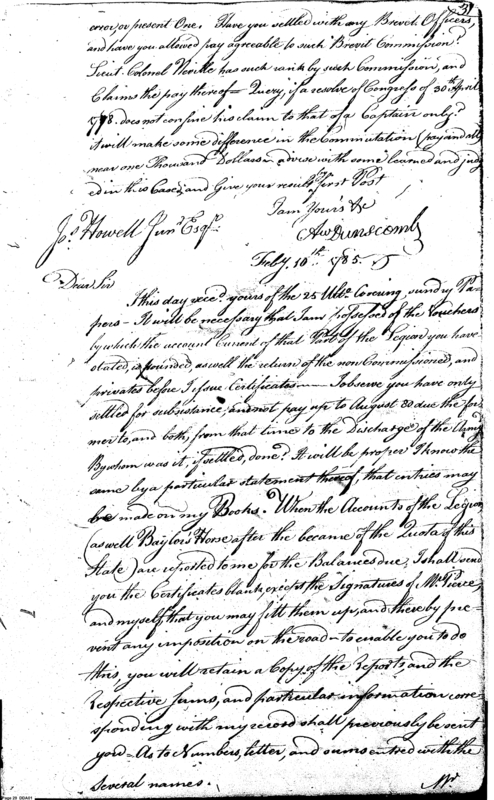 3
error or present One. Have you settled with any Brevet Officers,
and have you allowed pay agreeable to such Brevet Commission?
Lieut. Colonel Neville has such rank by such Commission, and
Claims the pay thereof – Query, if a resolve of Congress of 30th April
1778. does not confine his claim to that of a Captain only?
it will make some difference in the Commutation (pay and all)
near one Thousand Dollars – advise with some learned and judg
ed in this Case, and Give your result pr first Post
I am Yours &c
Aw Dunscomb
Jos. Howell Junr. Esqr.
Feby. 10th. 1785.
Dear Sir
This day reced. yours of the 25 Ulto. Covering, sundry Pa-
pers – It will be necessary that I am possessed of the Vouchers
by which the account Current of that Part of the Legion you have
stated, is founded, as well the return of the non Commissioned, and
privates before I issue Certificates — I observe you have only
settled for subsistance, and not pay up to August 80 due the for
mer to, and both, from that time to the Discharge of the Army
By whom was it, if settled, done? It will be proper I know the
came by a particular statement thereof, that entries may
be made on my Books. When the Accounts of the Legion
(as well Baylor's Horse after the became of the Quota of this
State) are reported to me for the Balances due, I shall send
you the Certificates blank, except the Signatures of Mr. Pierce,
and myself, that you may fill them up, and thereby pre-
vent any imposition on the road – to enable you to do
this, you will retain a Copy of the Reports, and the
Respective sums, and particular information corre-
sponding with my record shall previously be sent
you – As to Numbers, letter, and sums entred with the
several names.
Mr.
Page 28